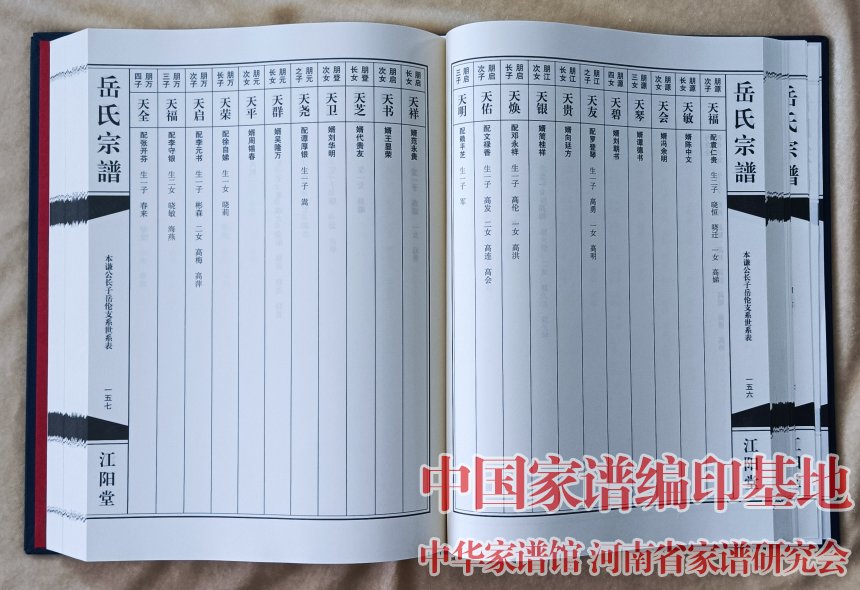 岳氏宗譜
本谦公长子岳伦支系世系表
一五六
江阳堂
朋源次子 天福 配袁仁贵 生二子 晓恒 晓迁 一女 高娣
朋源长女 天敏 婿陈中文
朋源次女 天会 婿冯余明
朋源三女 天琴 婿谭德书
朋源四女 天碧 婿刘朝书
朋江之子 天友 配罗登琴 生一子 高勇 一女 高明
朋江长女 天贵 婿向廷方
朋江次女 天银 婿简桂祥
朋启长子 天焕 配邓永祥 生一子 高伦 一女 高洪
朋启次子 天佑 配文禄香 生一子 高发 二女 高连 高会
朋启三子 天明 配赖平芝 生一子 军
朋启长女 天祥 婿范永贵
朋启次女 天书 婿王显荣
朋登长女 天芝 婿代贵友
朋登次女 天卫 婿刘华明
朋元之子 天尧 配谭厚银 生一子 嵩
朋元长女 天群 婿吴隆万
朋元次女 天平 婿周锡春
朋万长子 天荣 配徐自娣 生一女 晓莉
朋万次子 天启 配李元书 生一子 彬森 二女 高梅 高萍
朋万三子 天福 配李守银 生二女 晓敏 海燕
朋万四子 天全 配张开芬 生一子 春来
岳氏宗譜
本谦公长子岳伦支系世系表
一五七
江阳堂
中国家谱编印基地
中华家谱馆 河南省家谱研究会